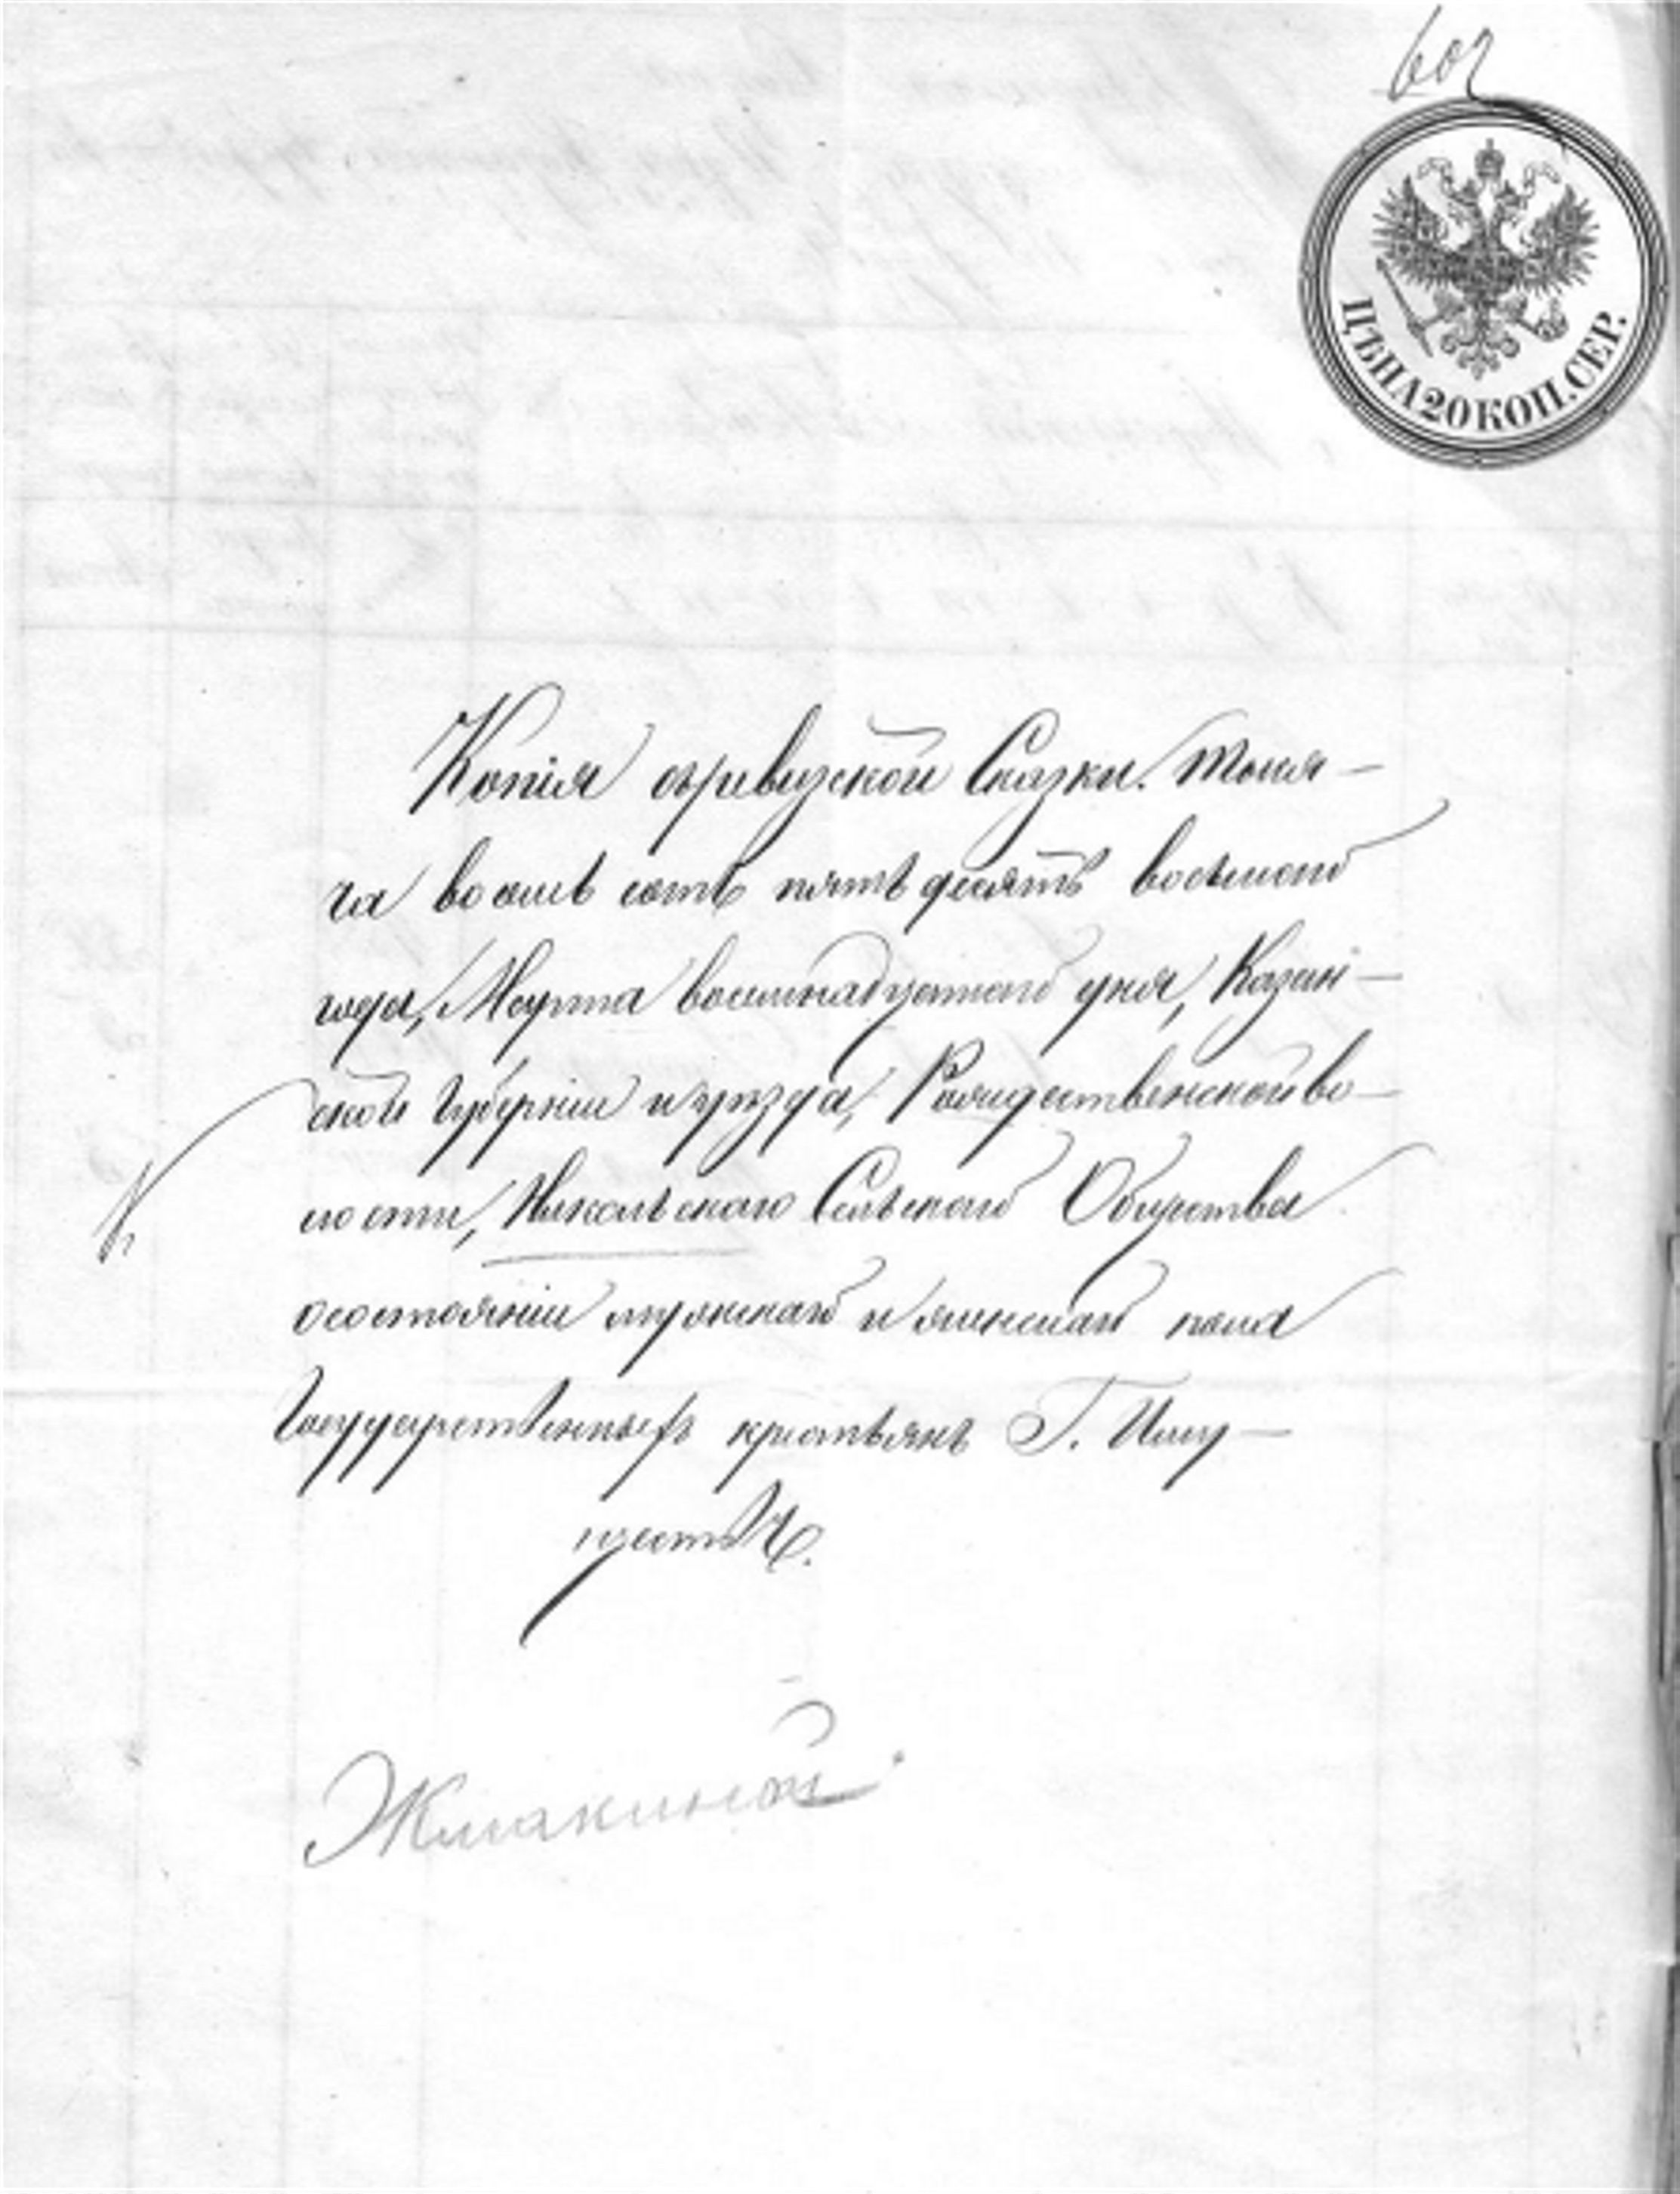 602
ЦѢНА 20 КОП. СЕР.
Копія съревизской Сказки. Тыся-
ча восемь сотъ пятьдесятъ восьмого
года, Марта восемнадцатаго дня, Казан-
ской Губерніи и уѣзда, Рождественской во-
лости, Никольскаго Сельскаго Общества
осостояніи мужскаго и женскаго пола
Государственныхъ крестьянъ Г. Иму-
ществъ.
Жмакиной